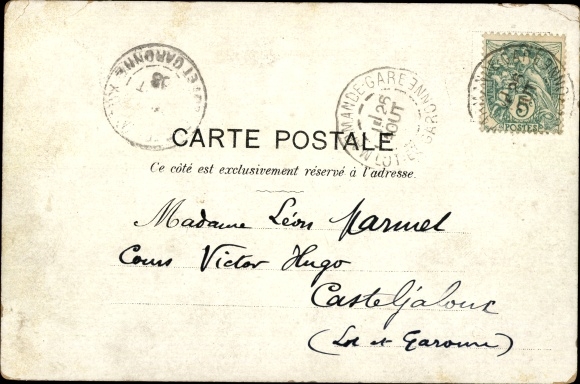 CARTE POSTALE
Ce côté est exclusivement réservé à l'adresse.
Madame Léon Marmel
Cours Victor Hugo
Casteljaloux
(Lot et Garonne)
MARMANDE-GARE
25
AOUT
LOT-ET-GARONNE
ET GARONNE
5
POSTES